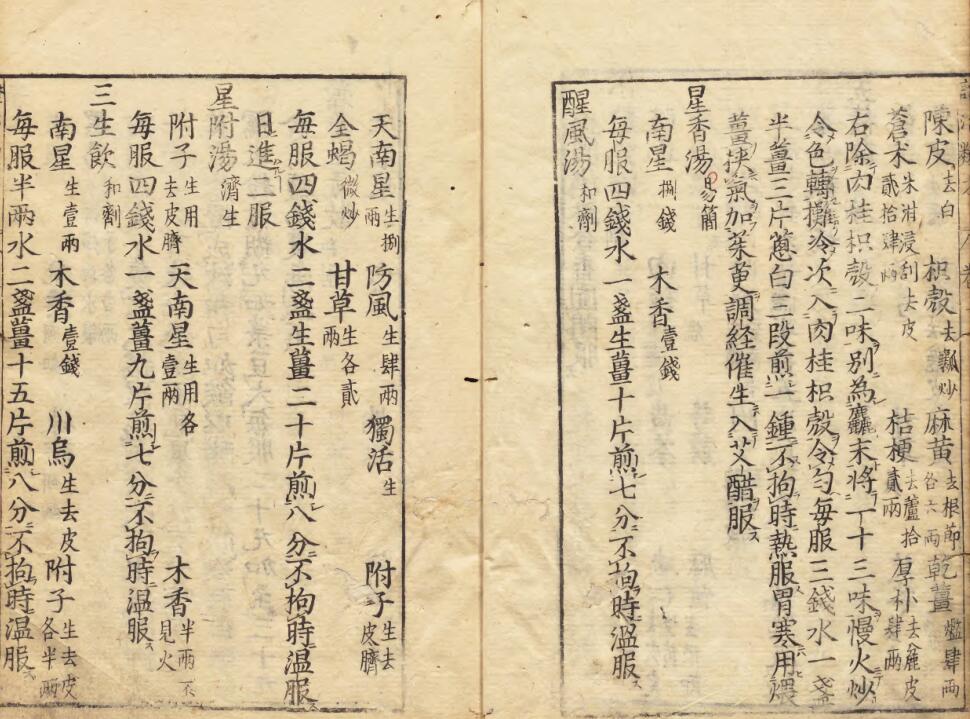 陳皮去白 枳殼去瓤炒 麻黃去根節各六兩 乾薑爁肆兩
蒼朮米泔浸刮去皮貳拾肆兩 桔梗去蘆拾貳兩 厚朴去麄皮肆兩
右除肉桂枳殼二味別為麤末將一十三味慢火炒
令色轉攤冷次入肉桂枳殼令勻每服三錢水一盞
半薑三片蔥白三段煎一鍾不拘時熱服胃寒用煨
薑挾氣加茱萸調經催生入艾醋服
星香湯易簡
南星捌錢 木香壹錢
每服四錢水一盞生薑十片煎七分不拘時溫服
醒風湯和劑
天南星生捌兩 防風生肆兩 獨活生 附子生去皮臍
全蝎微炒 甘草生各貳兩
每服四錢水二盞生薑二十片煎八分不拘時溫服
日進二服
星附湯濟生
附子生用去皮臍 天南星生用各壹兩 木香半兩不見火
每服四錢水一盞薑九片煎七分不拘時溫服
三生飲和劑
南星生壹兩 木香壹錢 川烏生去皮 附子生去皮各半兩
每服半兩水二盞薑十五片煎八分不拘時溫服